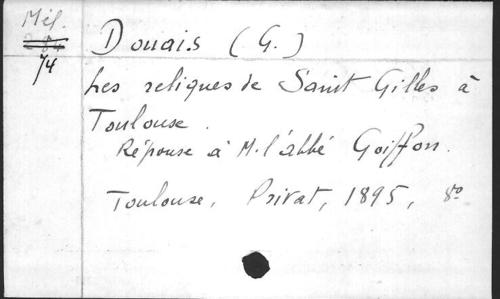 Mél.
74
Douais (G.)
Les reliques de Saint Gilles à
Toulouse.
Réponse à M. l'abbé Goiffon.
Toulouse, Privat, 1895, 8o